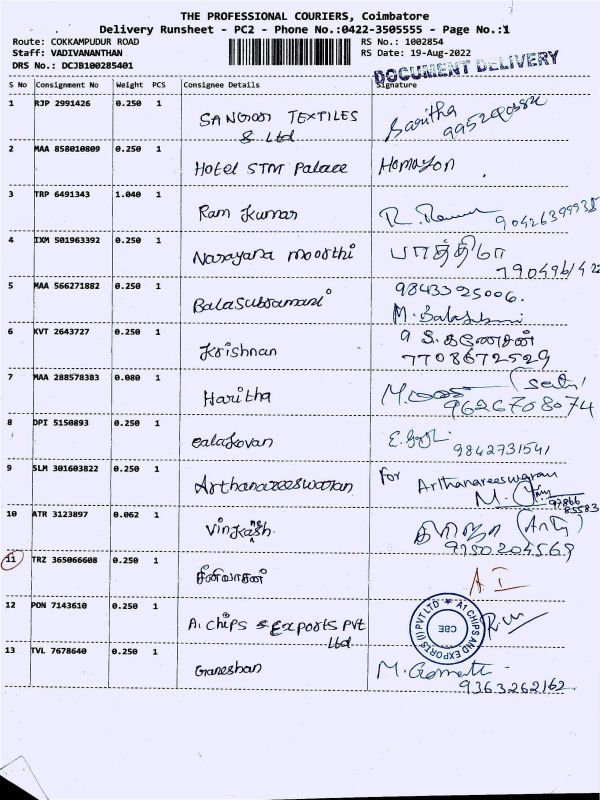 THE PROFESSIONAL COURIERS, Coimbatore
Delivery Runsheet - PC2 - Phone No.:0422-3505555 - Page No.:1
Route: COKKAMPUDUR ROAD
RS No.: 1002854
Staff: VADIVANANTHAN
RS Date: 19-Aug-2022
DRS No.: DCJB100285401
DOCUMENT DELIVERY
S No Consignment No Weight PCS Consignee Details Signature
1 RJP 2991426 0.250 1 TEXTILES Saritha
& Ltd
2 MAA 858010809 0.250 1 Hotel STM Palace Homayon
3 TRP 6491343 1.040 1 Ram Kumar R.
4 IXM 501963392 0.250 1 Narayana moorthi பாத்திமா
5 MAA 566271882 0.250 1 Balasubramani 9843325006.
M.
6 KVT 2643727 0.250 1 Krishnan
7708672529
7 MAA 288578383 0.080 1 Haritha M.
9626708074
8 DPI 5150893 0.250 1 E.
9842731541
9 SLM 301603822 0.250 1 Arthanareeswaran For Arthanareeswaran
M.
97866
85583
10 ATR 3123897 0.062 1
9750204569
11 TRZ 365066608 0.250 1 சீனிவாசன் A. I
12 PON 7143610 0.250 1 A1 chips & Exports Pvt
Ltd
A1 CHIPS AND EXPORTS (I) PVT LTD
CBE
13 TVL 7678640 0.250 1 Ganeshan M. Gomathi
9363262162